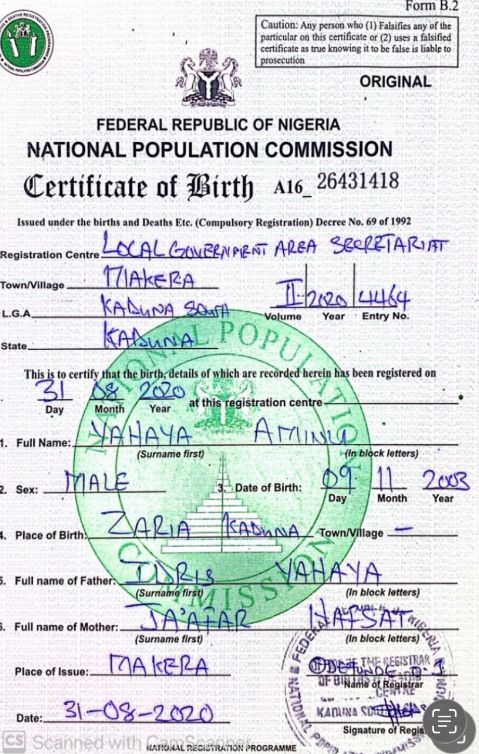 Form B.2
Caution: Any person who (1) Falsifies any of the
particular on this certificate or (2) uses a falsified
certificate as true knowing it to be false is liable to
prosecution
ORIGINAL
FEDERAL REPUBLIC OF NIGERIA
NATIONAL POPULATION COMMISSION
Certificate of Birth A16_ 26431418
Issued under the births and Deaths Etc. (Compulsory Registration) Decree No. 69 of 1992
Registration Centre LOCAL GOVERNMENT AREA SECRETARIAT
Town/Village MAKERA
II 2020 4464
L.G.A KADUNA SOUTH Volume Year Entry No.
State KADUNA
This is to certify that the birth, details of which are recorded herein has been registered on
31 08 2020 at this registration centre
Day Month Year
1. Full Name: YAHAYA AMINU
(Surname first) (In block letters)
2. Sex: MALE 3. Date of Birth: 09 11 2003
Day Month Year
4. Place of Birth: ZARIA KADUNA Town/Village —
5. Full name of Father: IDRIS YAHAYA
(Surname first) (In block letters)
6. Full name of Mother: JA'AFAR HAFSAT
(Surname first) (In block letters)
Place of Issue: MAKERA
Name of Registrar
Date: 31-08-2020
Signature of Regis
CS Scanned with CamScanner
NATIONAL REGISTRATION PROGRAMME
NATIONAL POPULATION COMMISSION